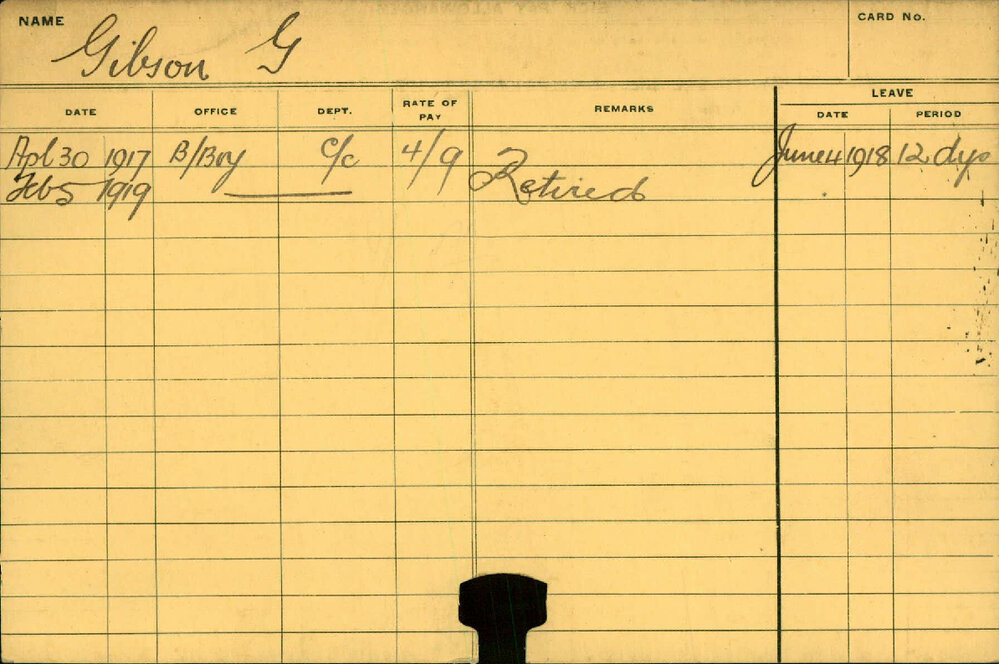 NAME Gibson G CARD No.
DATE OFFICE DEPT. RATE OF PAY REMARKS LEAVE
DATE PERIOD
Apl 30 1917 B/Boy C/c 4/9 June 4 1918 12 dys
Feb 5 1919 Retired